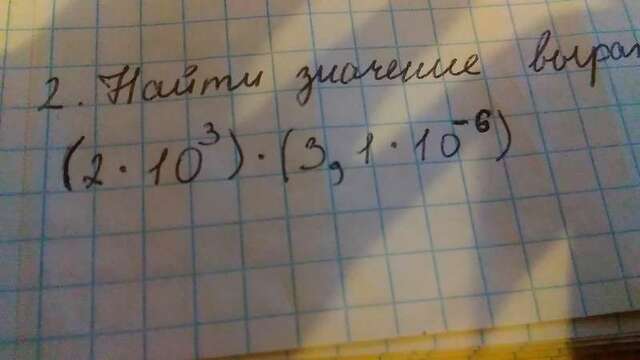 2. Найти значение выраж
(2 · 10³) · (3,1 · 10⁻⁶)